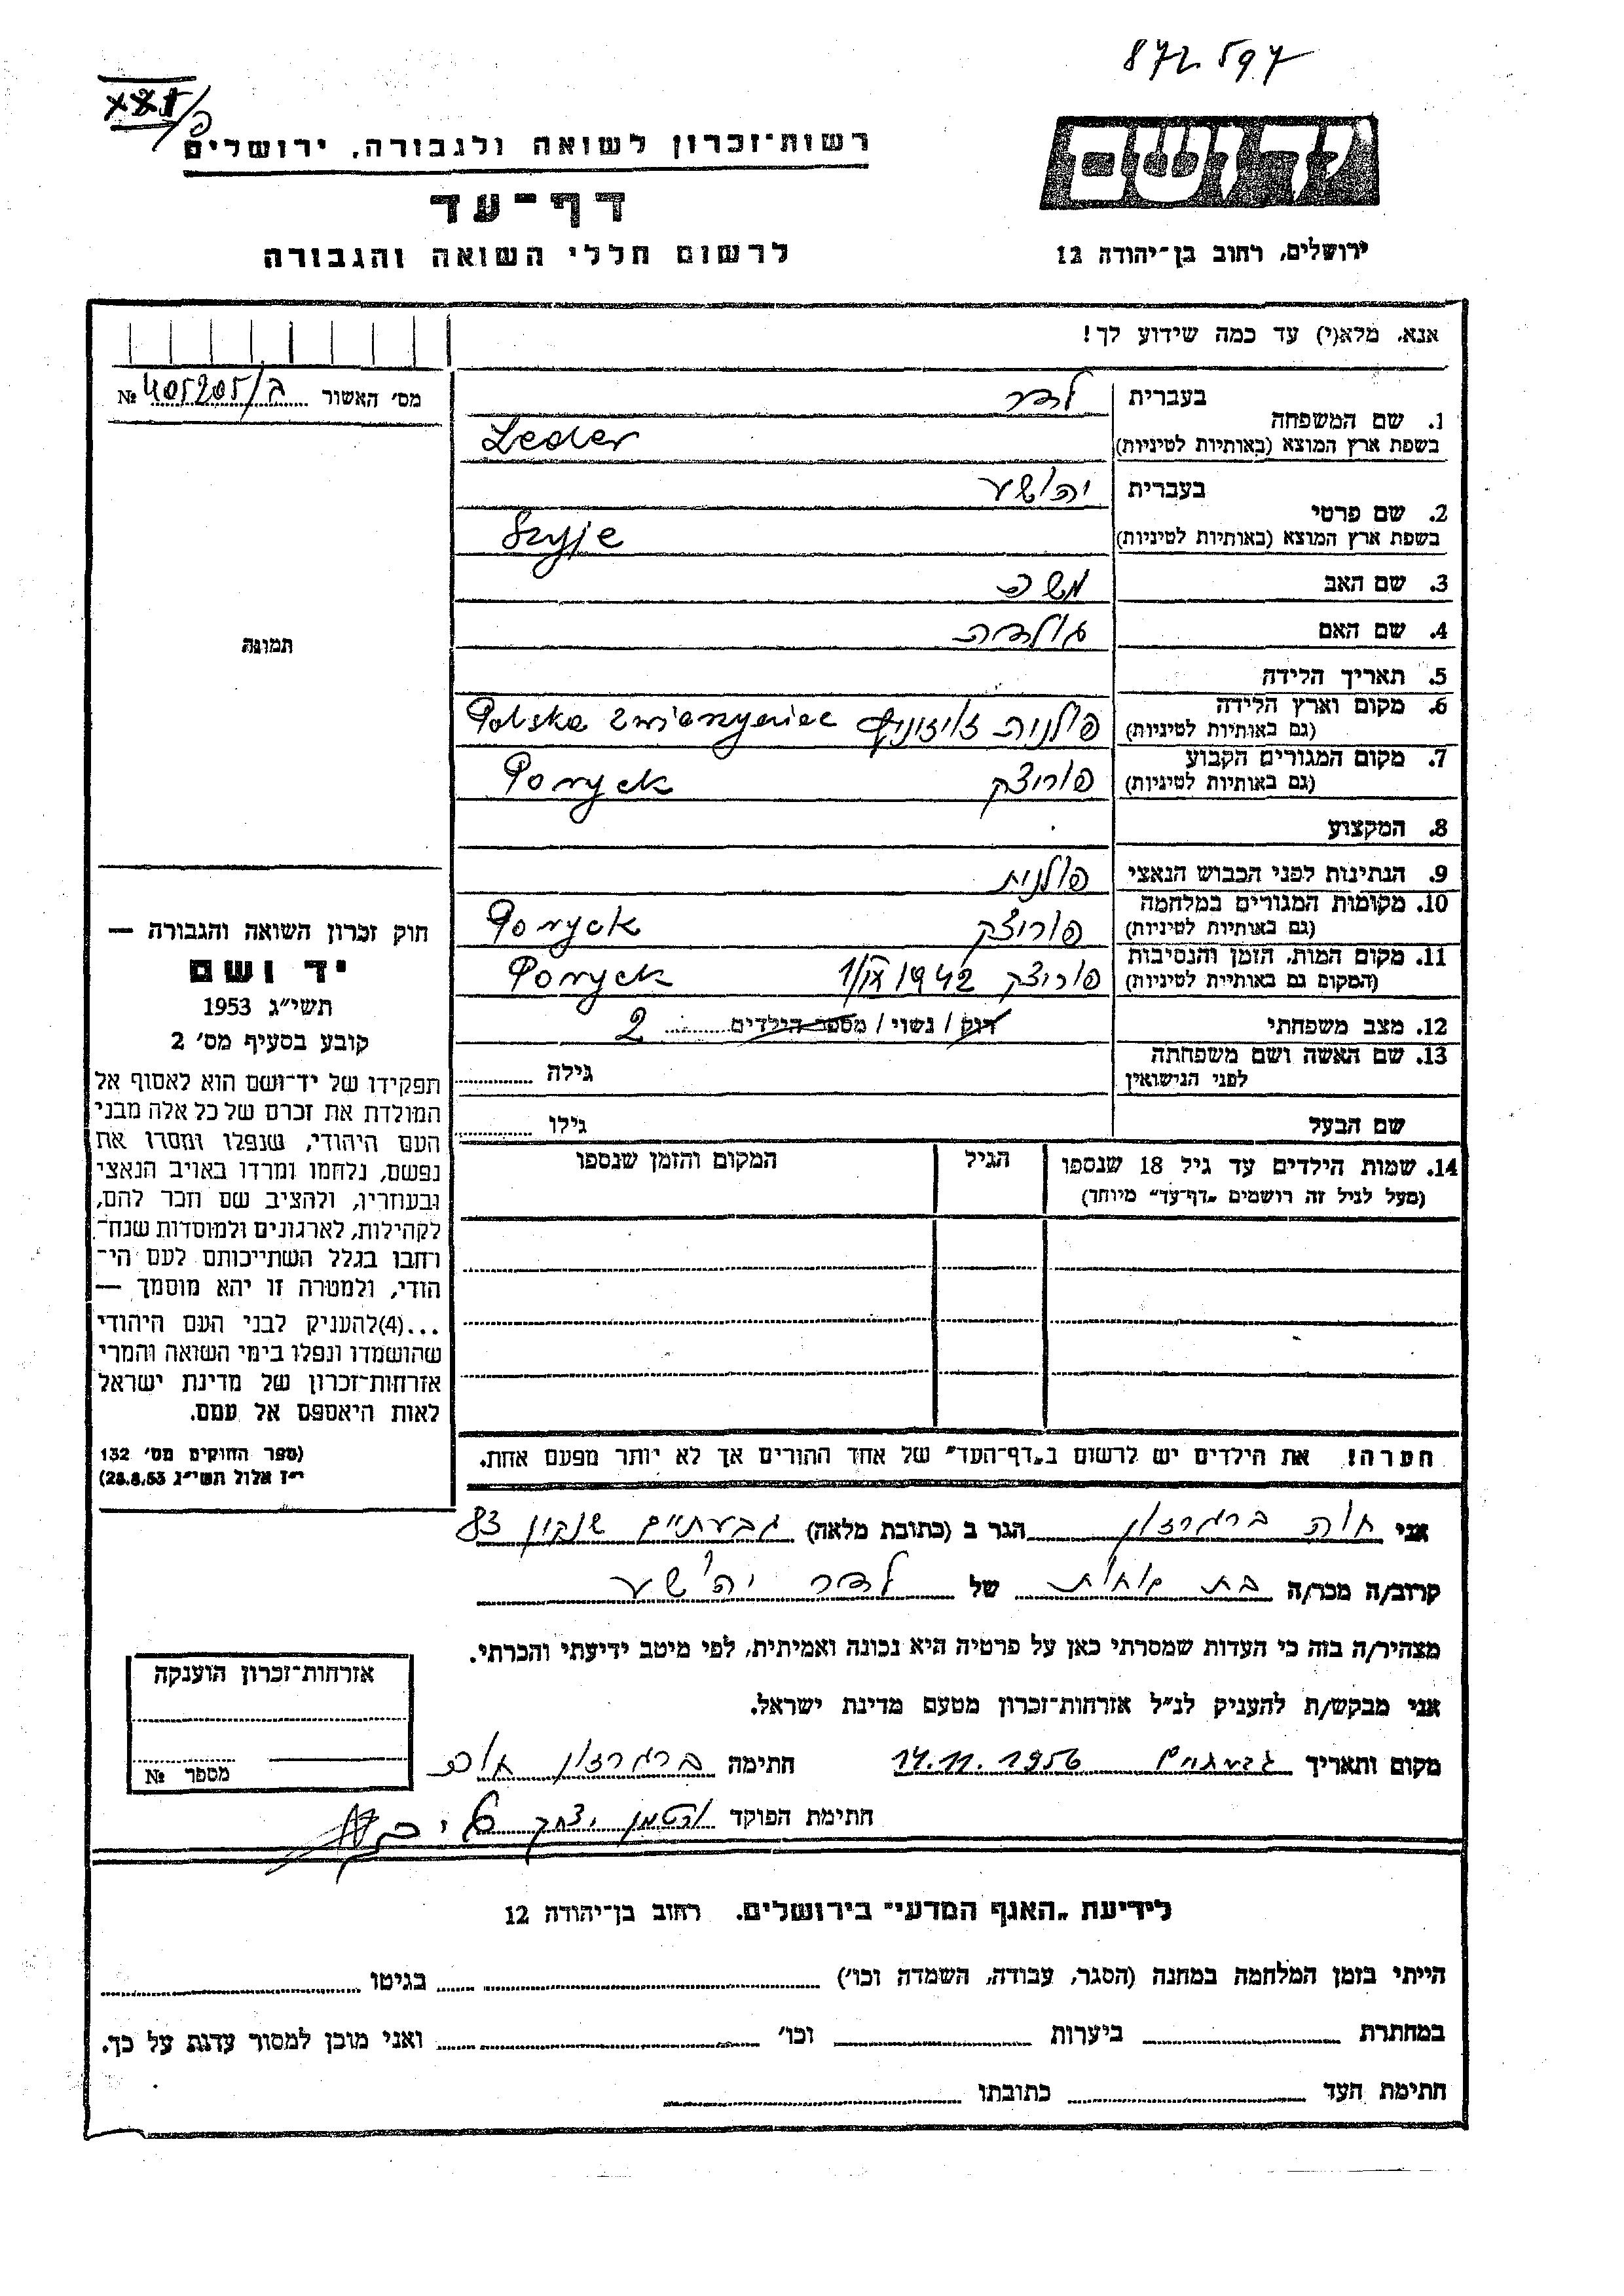 872597
רשות-זכרון לשואה ולגבורה, ירושלים
דף-עד
לרשום חללי השואה והגבורה
יד ושם
ירושלים, רחוב בן-יהודה 12
אנא, מלא(י) עד כמה שידוע לך!
מס' האשור 405205/ב №
תמונה
1. שם המשפחה בעברית לדר
בשפת ארץ המוצא (באותיות לטיניות) Leder
2. שם פרטי בעברית יהושע
בשפת ארץ המוצא (באותיות לטיניות) Szyje
3. שם האב משה
4. שם האם גולדה
5. תאריך הלידה
6. מקום וארץ הלידה
(גם באותיות לטיניות) פולנית Polska Zwierzyniec
7. מקום המגורים הקבוע
(גם באותיות לטיניות) פוריצק Poryck
8. המקצוע
9. הנתינות לפני הכבוש הנאצי פולנית
10. מקומות המגורים במלחמה
(גם באותיות לטיניות) פוריצק Poryck
11. מקום המות, הזמן והנסיבות
(המקום גם באותיית לטיניות) פוריצק 1/IX 1942 Poryck
12. מצב משפחתי רווק / נשוי / מספר הילדים 2
13. שם האשה ושם משפחתה
לפני הנישואין גילה
שם הבעל גילו
14. שמות הילדים עד גיל 18 שנספו הגיל המקום והזמן שנספו
(מעל לגיל זה רושמים "דף-עד" מיוחד)
הערה! את הילדים יש לרשום ב"דף-העד" של אחד ההורים אך לא יותר מפעם אחת.
חוק זכרון השואה והגבורה —
יד ושם
תשי"ג 1953
קובע בסעיף מס' 2
תפקידו של יד-ושם הוא לאסוף אל
המולדת את זכרם של כל אלה מבני
העם היהודי, שנפלו ומסרו את
נפשם, נלחמו ומרדו באויב הנאצי
ובעוזריו, ולהציב שם וזכר להם,
לקהילות, לארגונים ולמוסדות שנח-
רבו בגלל השתייכותם לעם הי-
הודי, ולמטרה זו יהא מוסמך —
...(4)להעניק לבני העם היהודי
שהושמדו ונפלו בימי השואה והמרי
אזרחות-זכרון של מדינת ישראל
לאות היאספם אל עמם.
(ספר החוקים מס' 132
י"ז אלול תשי"ג 28.8.53)
אני חוה ברגרזון הגר ב (כתובת מלאה) גבעתיים שנקין 83
קרוב/ה מכר/ה בת אחות של לדר יהושע
מצהיר/ה בזה כי העדות שמסרתי כאן על פרטיה היא נכונה ואמיתית, לפי מיטב ידיעתי והכרתי.
אני מבקש/ת להעניק לנ"ל אזרחות-זכרון מטעם מדינת ישראל.
מקום ותאריך גבעתיים 14.11.1956 חתימה ברגרזון חוה
חתימת הפוקד יצחק
אזרחות-זכרון הוענקה
מספר №
לידיעת "האגף המדעי" בירושלים, רחוב בן-יהודה 12
הייתי בזמן המלחמה במחנה (הסגר, עבודה, השמדה וכו') בגיטו
במחתרת ביערות וכו' ואני מוכן למסור עדות על כך.
חתימת העד כתובתו